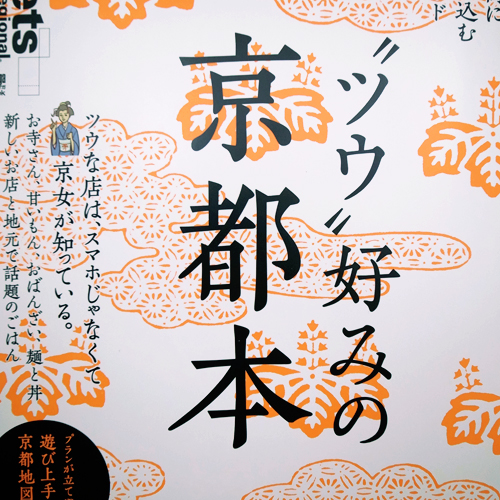 に
込む
ド
〝ツウ〟好みの
京都本
ツウな店は、スマホじゃなくて
京女が知っている。
お寺さん、甘いもん、おばんざい、麺と丼
新しいお店と地元で話題のごはん
ets
egional
プランが立て
遊び上手
京都地図